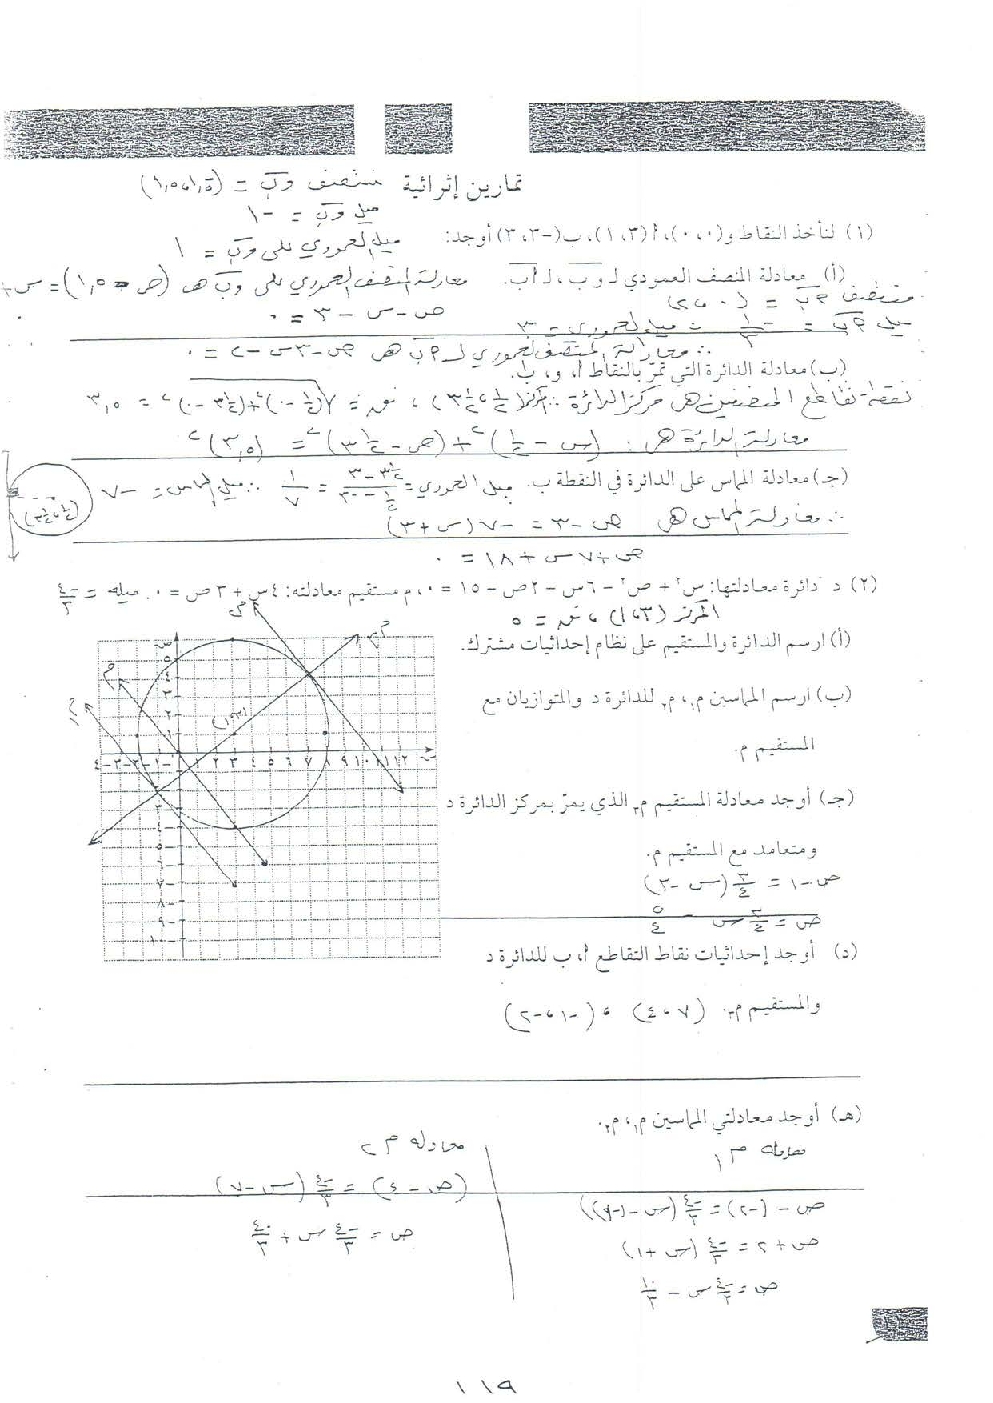 تمارين إثرائية منتصف وب = (-١,٥، ١,٥)
ميل وب = -١
(١) لنأخذ النقاط و(٠، ٠)، أ(٣، ١)، ب(-٣، ٣) أوجد: ميل العمودي على وب = ١
(أ) معادلة المنصف العمودي لـ وب، لـ أب. معادلة المنصف العمودي على وب هي (ص - ١,٥) = س +
منتصف أب = (٠، ٢) ص - س - ٣ = ٠
ميل أب = -١/٣ ∴ ميل العمودي = ٣
∴ معادلة المنتصف العمودي لـ أب هي ص - ٣س - ٢ = ٠
(ب) معادلة الدائرة التي تمرّ بالنقاط أ، و، ب.
نقطة تقاطع المنصفين هي مركز الدائرة
معادلة الدائرة هي
(جـ) معادلة المماس على الدائرة في النقطة ب. ميل العمودي = = ١/٧ ∴ ميل المماس = -٧
∴ معادلة المماس هي ص - ٣ = -٧(س + ٣)
ص + ٧س + ١٨ = ٠
(٢) د دائرة معادلتها: س² + ص² - ٦س - ٢ص - ١٥ = ٠، م مستقيم معادلته: ٤س + ٣ص = ٠. ميله = -٤/٣
المركز (٣، ١)، نق = ٥
(أ) ارسم الدائرة والمستقيم على نظام إحداثيات مشترك.
(ب) ارسم المماسين م١، م٢ للدائرة د والمتوازيان مع
المستقيم م.
(جـ) أوجد معادلة المستقيم م٣ الذي يمرّ بمركز الدائرة د
ومتعامد مع المستقيم م.
ص - ١ = ٣/٤ (س - ٣)
ص = ٣/٤ س - ٥/٤
(د) أوجد إحداثيات نقاط التقاطع أ، ب للدائرة د
والمستقيم م٣. (٧، ٤)، (-١، -٢)
(هـ) أوجد معادلتي المماسين م١، م٢.
معادلة م١
ص - (-٢) = -٤/٣ (س - (-١))
ص + ٢ = -٤/٣ (س + ١)
ص = -٤/٣ س - ١٠/٣
معادلة م٢
(ص - ٤) = -٤/٣ (س - ٧)
ص = -٤/٣ س + ٤٠/٣
١١٩